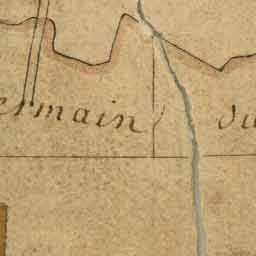 ermain du